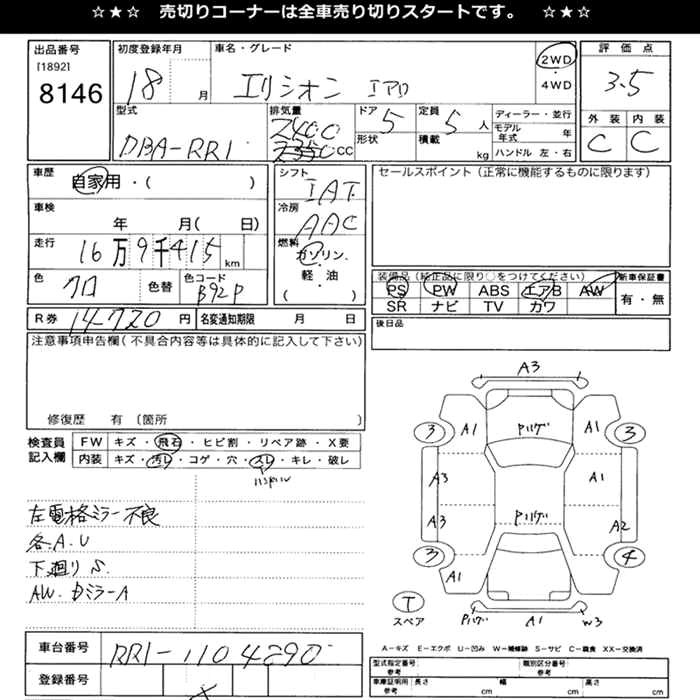 ☆★☆ 売切りコーナーは全車売り切りスタートです。 ☆★☆
出品番号
[1892]
8146
初度登録年月
18 月
車名・グレード
エリシオン
2WD
・
4WD
評価点
3.5
外装 内装
C C
型式
DBA-RR1
排気量
2400
CC
ドア
5
形状
定員
5 人
積載
kg
ディーラー・並行
モデル年式 年
ハンドル 左・右
車歴
自家用・( )
車検
年 月( 日)
走行
16万9千415km
色
クロ
色替
色コード
B92P
シフト
IAT
冷房
AAC
燃料
ガソリン・
軽・油
( )
セールスポイント(正常に機能するものに限ります)
装備品(純正品に限り○をつけてください)
PS PW ABS エアB AW
SR ナビ TV カワ
新車保証書
有・無
R券 14720円
名変通知期限 月 日
後日品
注意事項申告欄(不具合内容等は具体的に記入して下さい)
修復歴 有 〔箇所 〕
検査員記入欄
FW キズ・飛石・ヒビ割・リペア跡・X要
内装 キズ・汚レ・コゲ・穴・スレ・キレ・破レ
左電格ミラー不良
各A.U
下廻りS.
AW.ドミラーA
A3
3 A1 Pハゲ A1 3
A3 A1
A3 Pハゲ A2
3 A1 4
T
スペア
Pハゲ A1 W3
車台番号
RR1-1104890
登録番号
A-キズ E-エクボ U-凹み W-補修跡 S-サビ C-腐食 XX-交換済
型式指定番号
参考
類別区分番号
参考
車庫証明用
参考
長さ cm 幅 cm 高さ cm